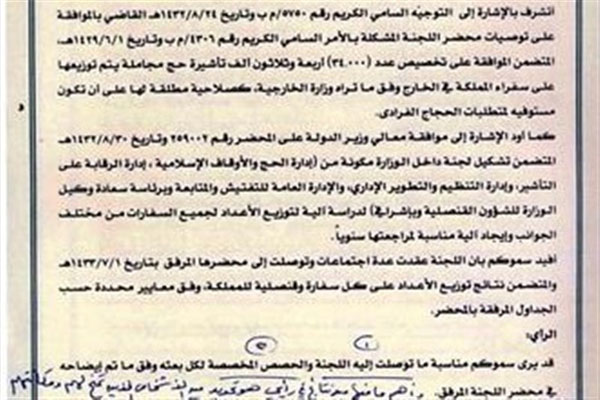 أتشرف بالإشارة إلى التوجيه السامي الكريم رقم ٥٧٥٠/م ب وتاريخ ١٤٣٢/٨/٢٤هـ القاضي بالموافقة
على توصيات محضر اللجنة المشكلة بالأمر السامي الكريم رقم ٤٣٠٦/م ب وتاريخ ١٤٢٩/٦/١هـ
المتضمن الموافقة على تخصيص عدد (٣٤,٠٠٠) أربعة وثلاثون ألف تأشيرة حج مجاملة يتم توزيعها
على سفراء المملكة في الخارج وفق ما تراه وزارة الخارجية، كصلاحية مطلقة لها على أن تكون
مستوفيه لمتطلبات الحجاج الفرادى.
كما اود الإشارة إلى موافقة معالي وزير الدولة على المحضر رقم ٢٥٩٠٠٢ وتاريخ ١٤٣٢/٨/٣٠هـ
المتضمن تشكيل لجنة داخل الوزارة مكونة من (إدارة الحج والأوقاف الإسلامية ، إدارة الرقابة على
التأشير، وإدارة التنظيم والتطوير الإداري، والإدارة العامة للتفتيش والمتابعة وبرئاسة سعادة وكيل
الوزارة للشؤون القنصلية وبإشرافي) لدراسة آلية لتوزيع الأعداد لجميع السفارات من مختلف
الجوانب وإيجاد آلية مناسبة لمراجعتها سنوياً.
أفيد سموكم بان اللجنة عقدت عدة اجتماعات وتوصلت إلى محضرها المرفق بتاريخ ١٤٣٣/٧/١هـ
والمتضمن نتائج توزيع الأعداد على كل سفارة وقنصلية للمملكة، وفق معايير محددة حسب
الجداول المرفقة بالمحضر.
الرأي:
قد يرى سموكم مناسبة ما توصلت إليه اللجنة والحصص المخصصة لكل بعثه وفق ما تم إيضاحه
في محضر اللجنة المرفق.